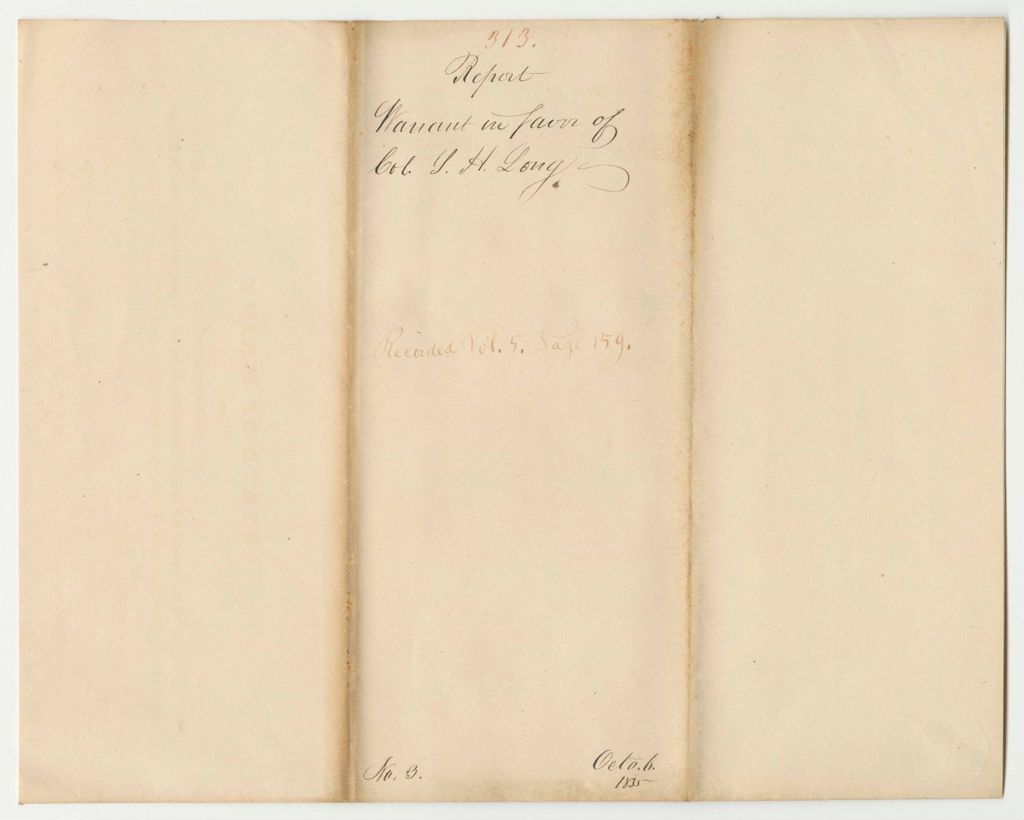 313.
Report
Warrant in favor of
Col. S. H. Long
Recorded Vol. 5. Page 159.
No. 3.
Octo. 6.
1835